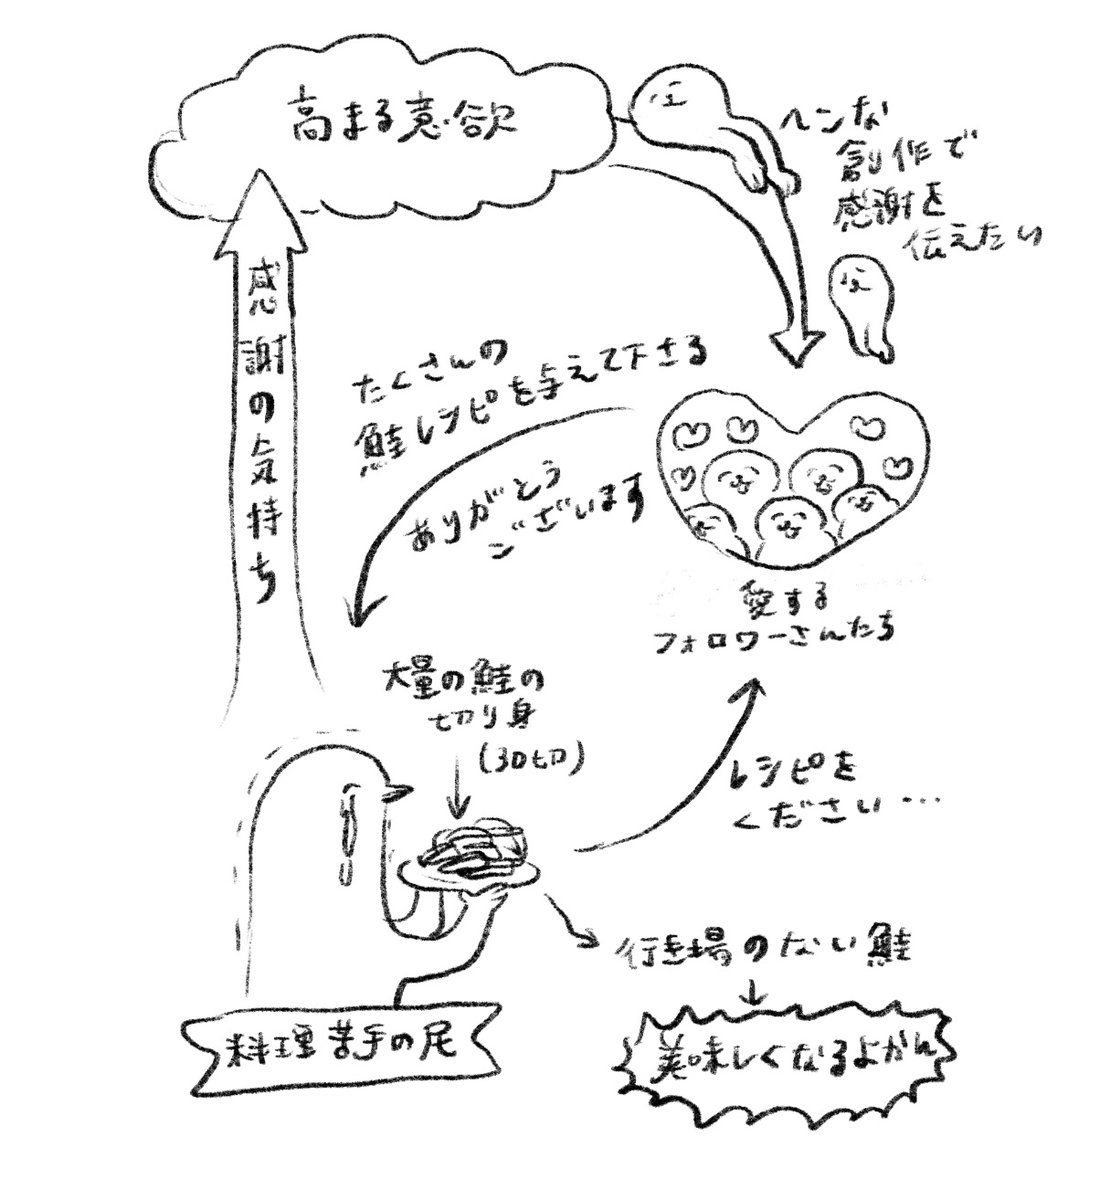 高まる意欲
ヘンな
創作で
感謝を
伝えたい
感謝の気持ち
たくさんの
鮭レシピを与えて下さる
ありがとう
ございます
愛する
フォロワーさんたち
大量の鮭の
切り身
(30切)
レシピを
ください…
行き場のない鮭
美味しくなるよかん
料理苦手の尾